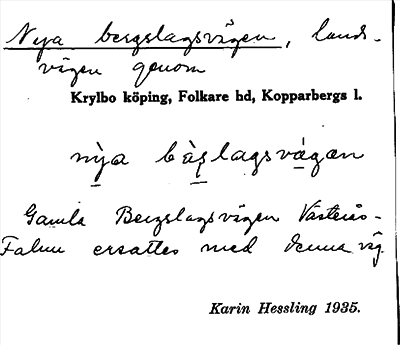 Nya bergslagsvägen, lands-
vägen genom
Krylbo köping, Folkare hd, Kopparbergs l.
nỳa bàslagsvägan
Gamla Bergslagsvägen Västerås-
Falun ersattes med denna väg
Karin Hessling 1935.